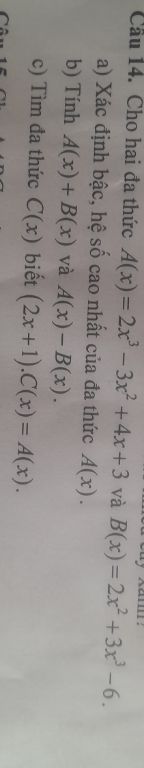 xanh?
Câu 14. Cho hai đa thức A(x) = 2x³ − 3x² + 4x + 3 và B(x) = 2x² + 3x³ − 6.
a) Xác định bậc, hệ số cao nhất của đa thức A(x).
b) Tính A(x) + B(x) và A(x) − B(x).
c) Tìm đa thức C(x) biết (2x + 1).C(x) = A(x).